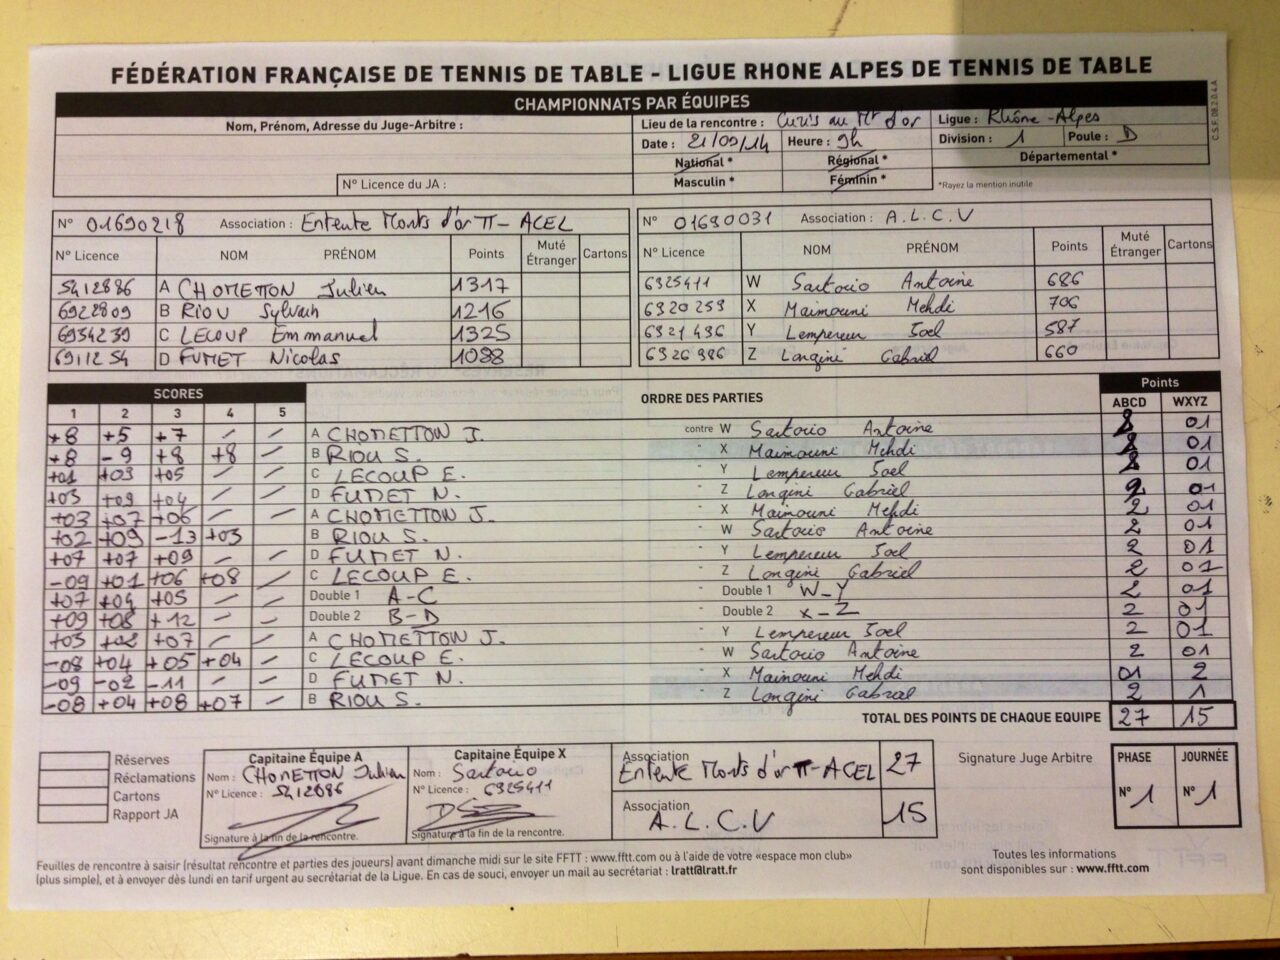 FÉDÉRATION FRANÇAISE DE TENNIS DE TABLE - LIGUE RHONE ALPES DE TENNIS DE TABLE
C.S.F. 08.2.0.4.A
CHAMPIONNATS PAR ÉQUIPES
Nom, Prénom, Adresse du Juge-Arbitre :
N° Licence du JA :
Lieu de la rencontre : Curis au Mt d'or
Ligue : Rhône-Alpes
Date : 21/09/14 Heure : 9h
Division : 1 Poule : D
National * Régional * Départemental *
Masculin * Féminin * *Rayez la mention inutile
N° 01690218 Association : Entente Monts d'or TT - ACEL
N° Licence NOM PRÉNOM Points Muté Étranger Cartons
5412886 A CHOMETTON Julien 1317
6922809 B RIOU Sylvain 1216
6934239 C LECOUP Emmanuel 1325
6911254 D FUMET Nicolas 1088
N° 01690031 Association : A.L.C.V
N° Licence NOM PRÉNOM Points Muté Étranger Cartons
6325411 W Sartorio Antoine 686
6920259 X Maimouni Mehdi 706
6321496 Y Lempereur Joel 587
6326986 Z Longini Gabriel 660
SCORES ORDRE DES PARTIES Points
1 2 3 4 5 ABCD WXYZ
+8 +5 +7 / / A CHOMETTON J. contre W Sartorio Antoine 2 01
+8 -9 +8 +8 / B RIOU S. " X Maimouni Mehdi 2 01
+01 +03 +05 / / C LECOUP E. " Y Lempereur Joel 2 01
+03 +09 +04 / / D FUMET N. " Z Longini Gabriel 2 01
+03 +07 +06 / / A CHOMETTON J. " X Maimouni Mehdi 2 01
+02 +09 -13 +03 / B RIOU S. " W Sartorio Antoine 2 01
+07 +07 +09 / / D FUMET N. " Y Lempereur Joel 2 01
-09 +01 +06 +08 / C LECOUP E. " Z Longini Gabriel 2 01
+07 +04 +05 / / Double 1 A-C " Double 1 W-Y 2 01
+09 +08 +12 / / Double 2 B-D " Double 2 X-Z 2 01
+03 +02 +07 / / A CHOMETTON J. " Y Lempereur Joel 2 01
-08 +04 +05 +04 / C LECOUP E. " W Sartorio Antoine 2 01
-09 -02 -11 / / D FUMET N. " X Maimouni Mehdi 01 2
-08 +04 +08 +07 / B RIOU S. " Z Longini Gabriel 2 1
TOTAL DES POINTS DE CHAQUE EQUIPE 27 15
Réserves
Réclamations
Cartons
Rapport JA
Capitaine Équipe A
Nom : CHOMETTON Julien
N° Licence : 5412886
Signature à la fin de la rencontre.
Capitaine Équipe X
Nom : Sartorio
N° Licence : 6325411
Signature à la fin de la rencontre.
Association
Entente Monts d'or TT - ACEL 27
Association
A.L.C.V 15
Signature Juge Arbitre
PHASE JOURNÉE
N° 1 N° 1
Feuilles de rencontre à saisir (résultat rencontre et parties des joueurs) avant dimanche midi sur le site FFTT : www.fftt.com ou à l'aide de votre «espace mon club»
(plus simple), et à envoyer dès lundi en tarif urgent au secrétariat de la Ligue. En cas de souci, envoyer un mail au secrétariat : lratt@lratt.fr
Toutes les informations
sont disponibles sur : www.fftt.com